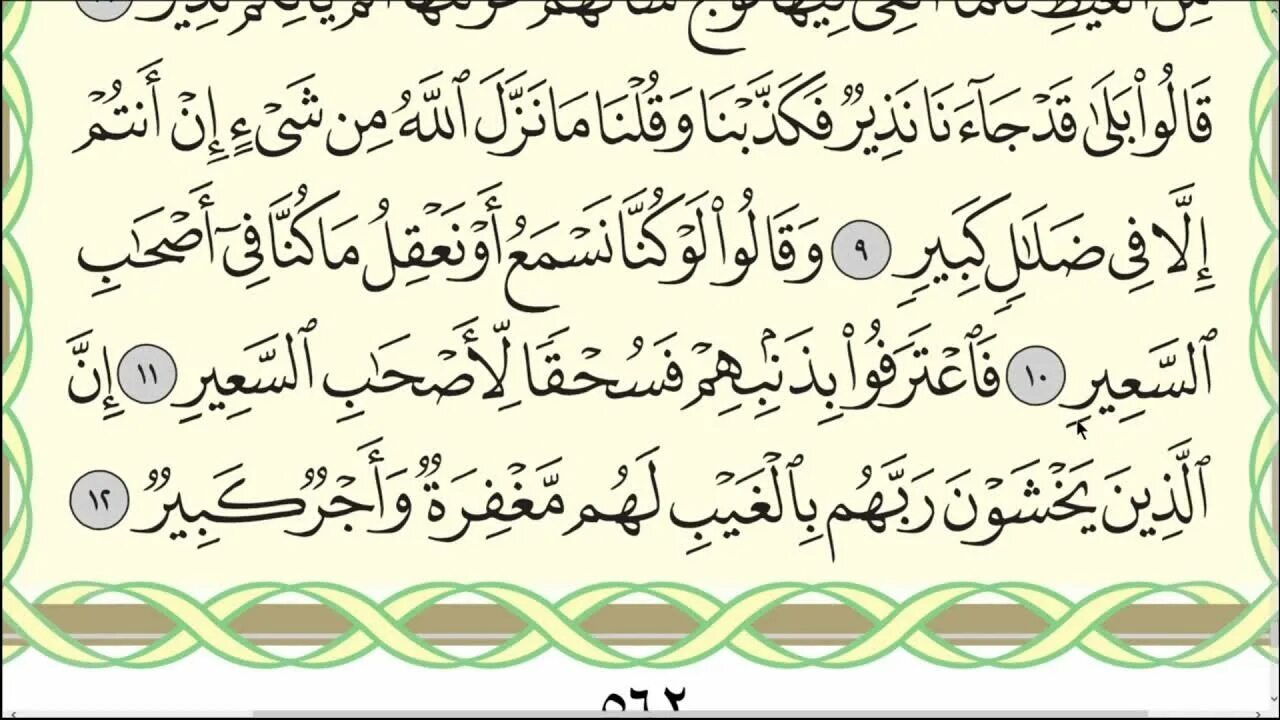 مِنَ ٱلْغَيْظِ كُلَّمَآ أُلْقِىَ فِيهَا فَوْجٌ سَأَلَهُمْ خَزَنَتُهَآ أَلَمْ يَأْتِكُمْ نَذِيرٌ ٨
قَالُوا۟ بَلَىٰ قَدْ جَآءَنَا نَذِيرٌ فَكَذَّبْنَا وَقُلْنَا مَا نَزَّلَ ٱللَّهُ مِن شَىْءٍ إِنْ أَنتُمْ
إِلَّا فِى ضَلَـٰلٍ كَبِيرٍ ٩ وَقَالُوا۟ لَوْ كُنَّا نَسْمَعُ أَوْ نَعْقِلُ مَا كُنَّا فِىٓ أَصْحَـٰبِ
ٱلسَّعِيرِ ١٠ فَٱعْتَرَفُوا۟ بِذَنۢبِهِمْ فَسُحْقًا لِّأَصْحَـٰبِ ٱلسَّعِيرِ ١١ إِنَّ
ٱلَّذِينَ يَخْشَوْنَ رَبَّهُم بِٱلْغَيْبِ لَهُم مَّغْفِرَةٌ وَأَجْرٌ كَبِيرٌ ١٢
٥٦٢